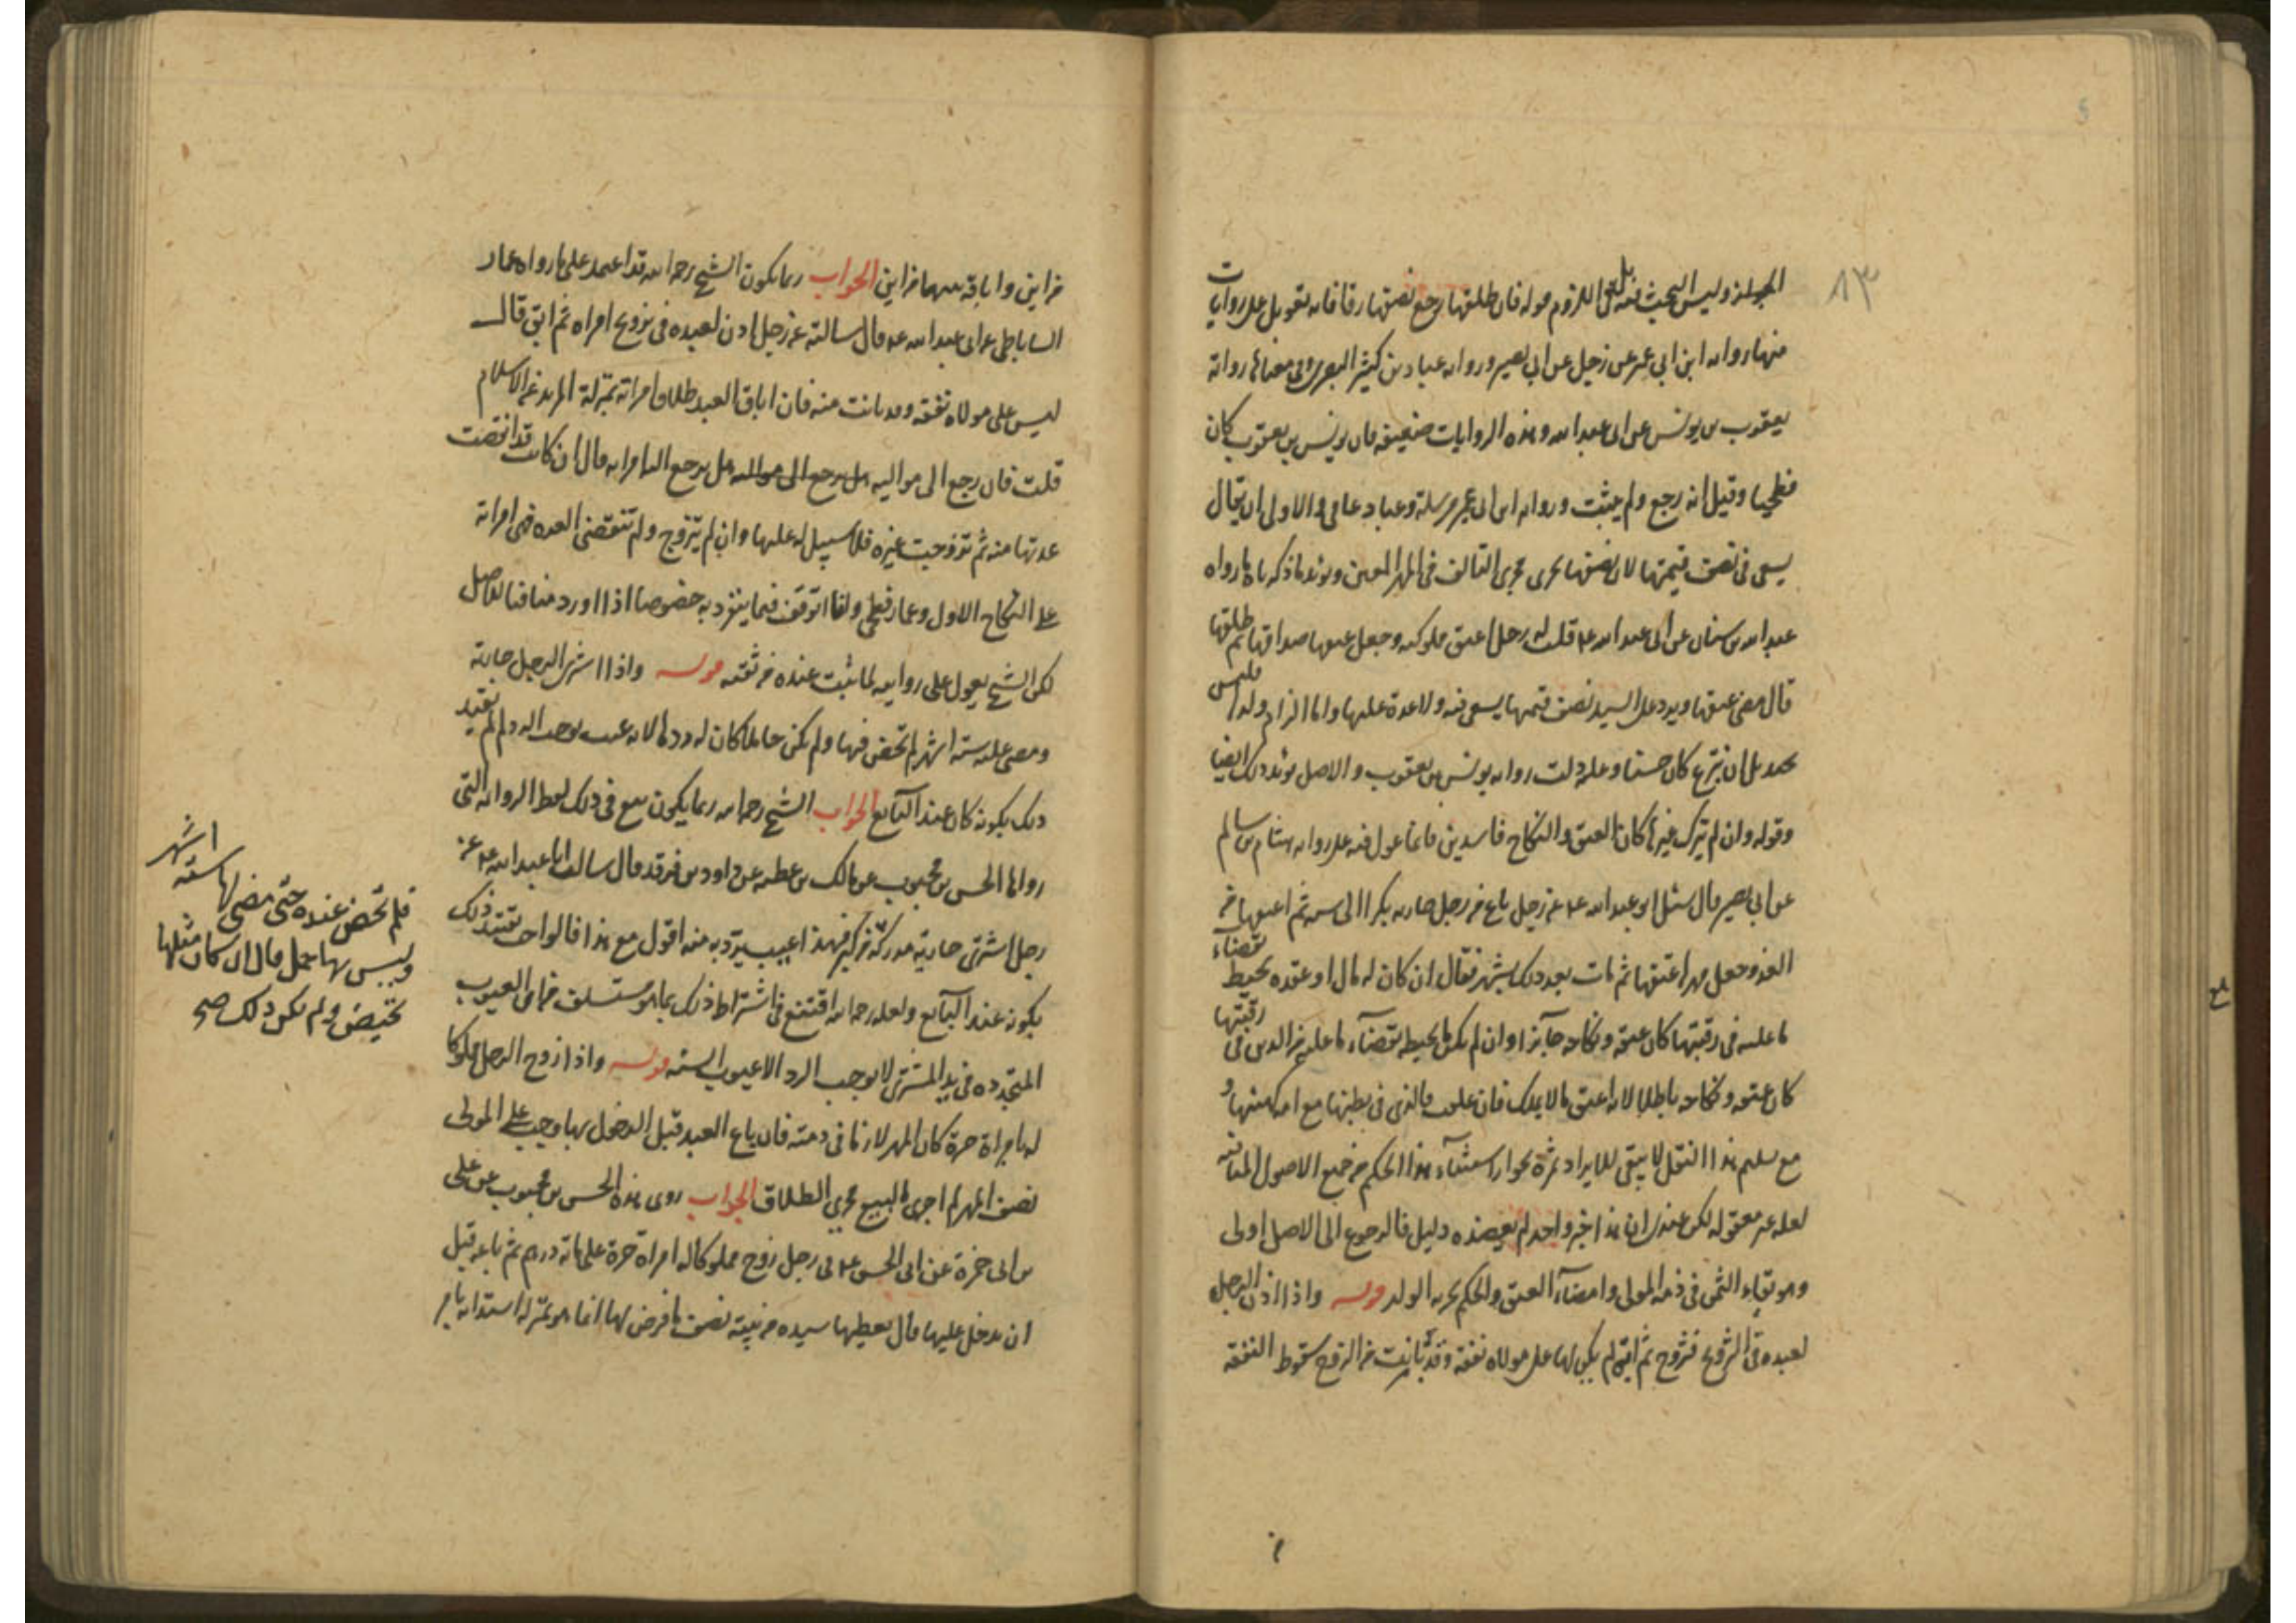 ٨٣
الجواز وليس البحث فيه بل فى اللزوم قوله فان طلقها رجع نصفها رقا فانه تعويل على روايات
منها رواية ابن ابى عمير عن رجل عن ابى بصير ورواية عباد بن كثير البصرى وفى معناها رواية
يعقوب بن يونس عن ابى عبد الله وهذه الروايات ضعيفه فان يونس بن يعقوب كان
فطحيا وقيل انه رجع ولم يثبت ورواية ابن ابى عمير مرسلة وعباد عامى والاولى ان يقال
يسعى فى نصف قيمتها لان نصفها يجرى مجرى التالف فى المهر المعين ويؤيد ما ذكرناه ما رواه
عبد الله بن سنان عن ابى عبد الله ع قلت له رجل اعتق مملوكته وجعل عتقها صداقها ثم طلقها
قال مضى عتقها ويرد على السيد نصف قيمتها يسعى فيه ولا عدة عليها واما الزام ولدها فليس
بجيد بل ان تبرع كان حسنا وعليه دلت رواية يونس بن يعقوب والاصل يؤيد ذلك ايضا
وقوله وان لم يترك غيرها كان العتق والنكاح فاسدين فانما عول فيه على رواية هشام بن سالم
عن ابى بصير قال سئل ابو عبد الله ع عن رجل باع من رجل جارية بكرا الى سنة ثم اعتقها من
الغد وجعل مهرها عتقها ثم مات بعد ذلك بشهر فقال ان كان له مال او عقده يحيط بقضاء
ما عليه فى رقبتها كان عتقه ونكاحه جائزا وان لم يكن ما يحيط بقضاء ما عليه من الدين فى رقبتها
كان عتقه ونكاحه باطلا لانه اعتق ما لا يملك فان علقت فالذى فى بطنها مع امه كهيئتها و
مع تسليم هذا النقل لا يبقى للايراد ثمرة لجواز استثناء هذا الحكم من جميع الاصول المنافيه
لعله غير معقوله لكن عندى ان هذا خبر واحد لم يعضده دليل فالرجوع الى الاصل اولى
وهو بقاء الثمن فى ذمة المولى وامضاء العتق والحكم بحرية الولد قوله واذا اذن الرجل
لعبده فى التزويج فتزوج ثم ابق لم يكن لها على مولاه نفقة وقد بانت من الزوج سقوط النفقه
من اين واباقه سهما من اين الجواب ربما يكون الشيخ رحمه الله قد اعتمد على ما رواه عمار
الساباطى عن ابى عبد الله ع قال سالته عن رجل اذن لعبده فى تزويج امراه ثم ابق قال
ليس على مولاه نفقه وقد بانت منه فان اباق العبد طلاق امراته بمنزلة المرتد عن الاسلام
قلت فان رجع الى مواليه هل يرجع الى مواليه هل يرجع اليه امراته قال ان كانت قد انقضت
عدتها منه ثم تزوجت غيره فلا سبيل له عليها وان لم يتزوج ولم تنقضى العده فهى امراته
على النكاح الاول وعمار فطحى ولقا اتوقف فيما ينفرد به خصوصا اذا اورد منافيا للاصل
لكن الشيخ يعول على روايته لما ثبت عنده من ثقته قوله واذا اشترى الرجل جارية
ومضى عليه ستة اشهر لم تحض فيها ولم يكن حاملا كان له ردها لانه عيب يوجب الرد ولم لم يقيد
ذلك بكونه كان عند البايع الجواب الشيخ رحمه الله ربما يكون تبع فى ذلك لفظ الروايه التى
رواها الحسن بن محبوب عن مالك بن عطيه عن داود بن فرقد قال سالت ابا عبد الله ع عن
رجل اشترى جارية مدركة من كبر فهذا عيب يرد به منه اقول مع هذا فالواجب تقييد ذلك
بكونه عند البايع ولعله رحمه الله اقتنع فى اشتراط ذلك بما هو مستسلف من ان العيوب
المتجدده فى يد المشترى لا يوجب الرد الا عيوب السنه قوله واذا زوج الرجل مملوكا
له امراة حرة كان المهر لازما فى ذمته فان باع العبد قبل الدخول بها وجب على المولى
نصف المهر لم اجرى البيع مجرى الطلاق الجواب روى هذه الحسن بن محبوب عن على
بن ابى حمزة عن ابى الحسن ع فى رجل زوج مملوكا له امراة حرة على مائة درهم ثم باعه قبل
ان يدخل عليها قال يعطيها سيده من ثمنه نصف ما فرض لها انما هو بمنزله استدانه بامر
فلم تحض عنده حتى مضى لها ستة اشهر
وليس بها حمل قال ان كان مثلها
تحيض ولم يكن ذلك صح